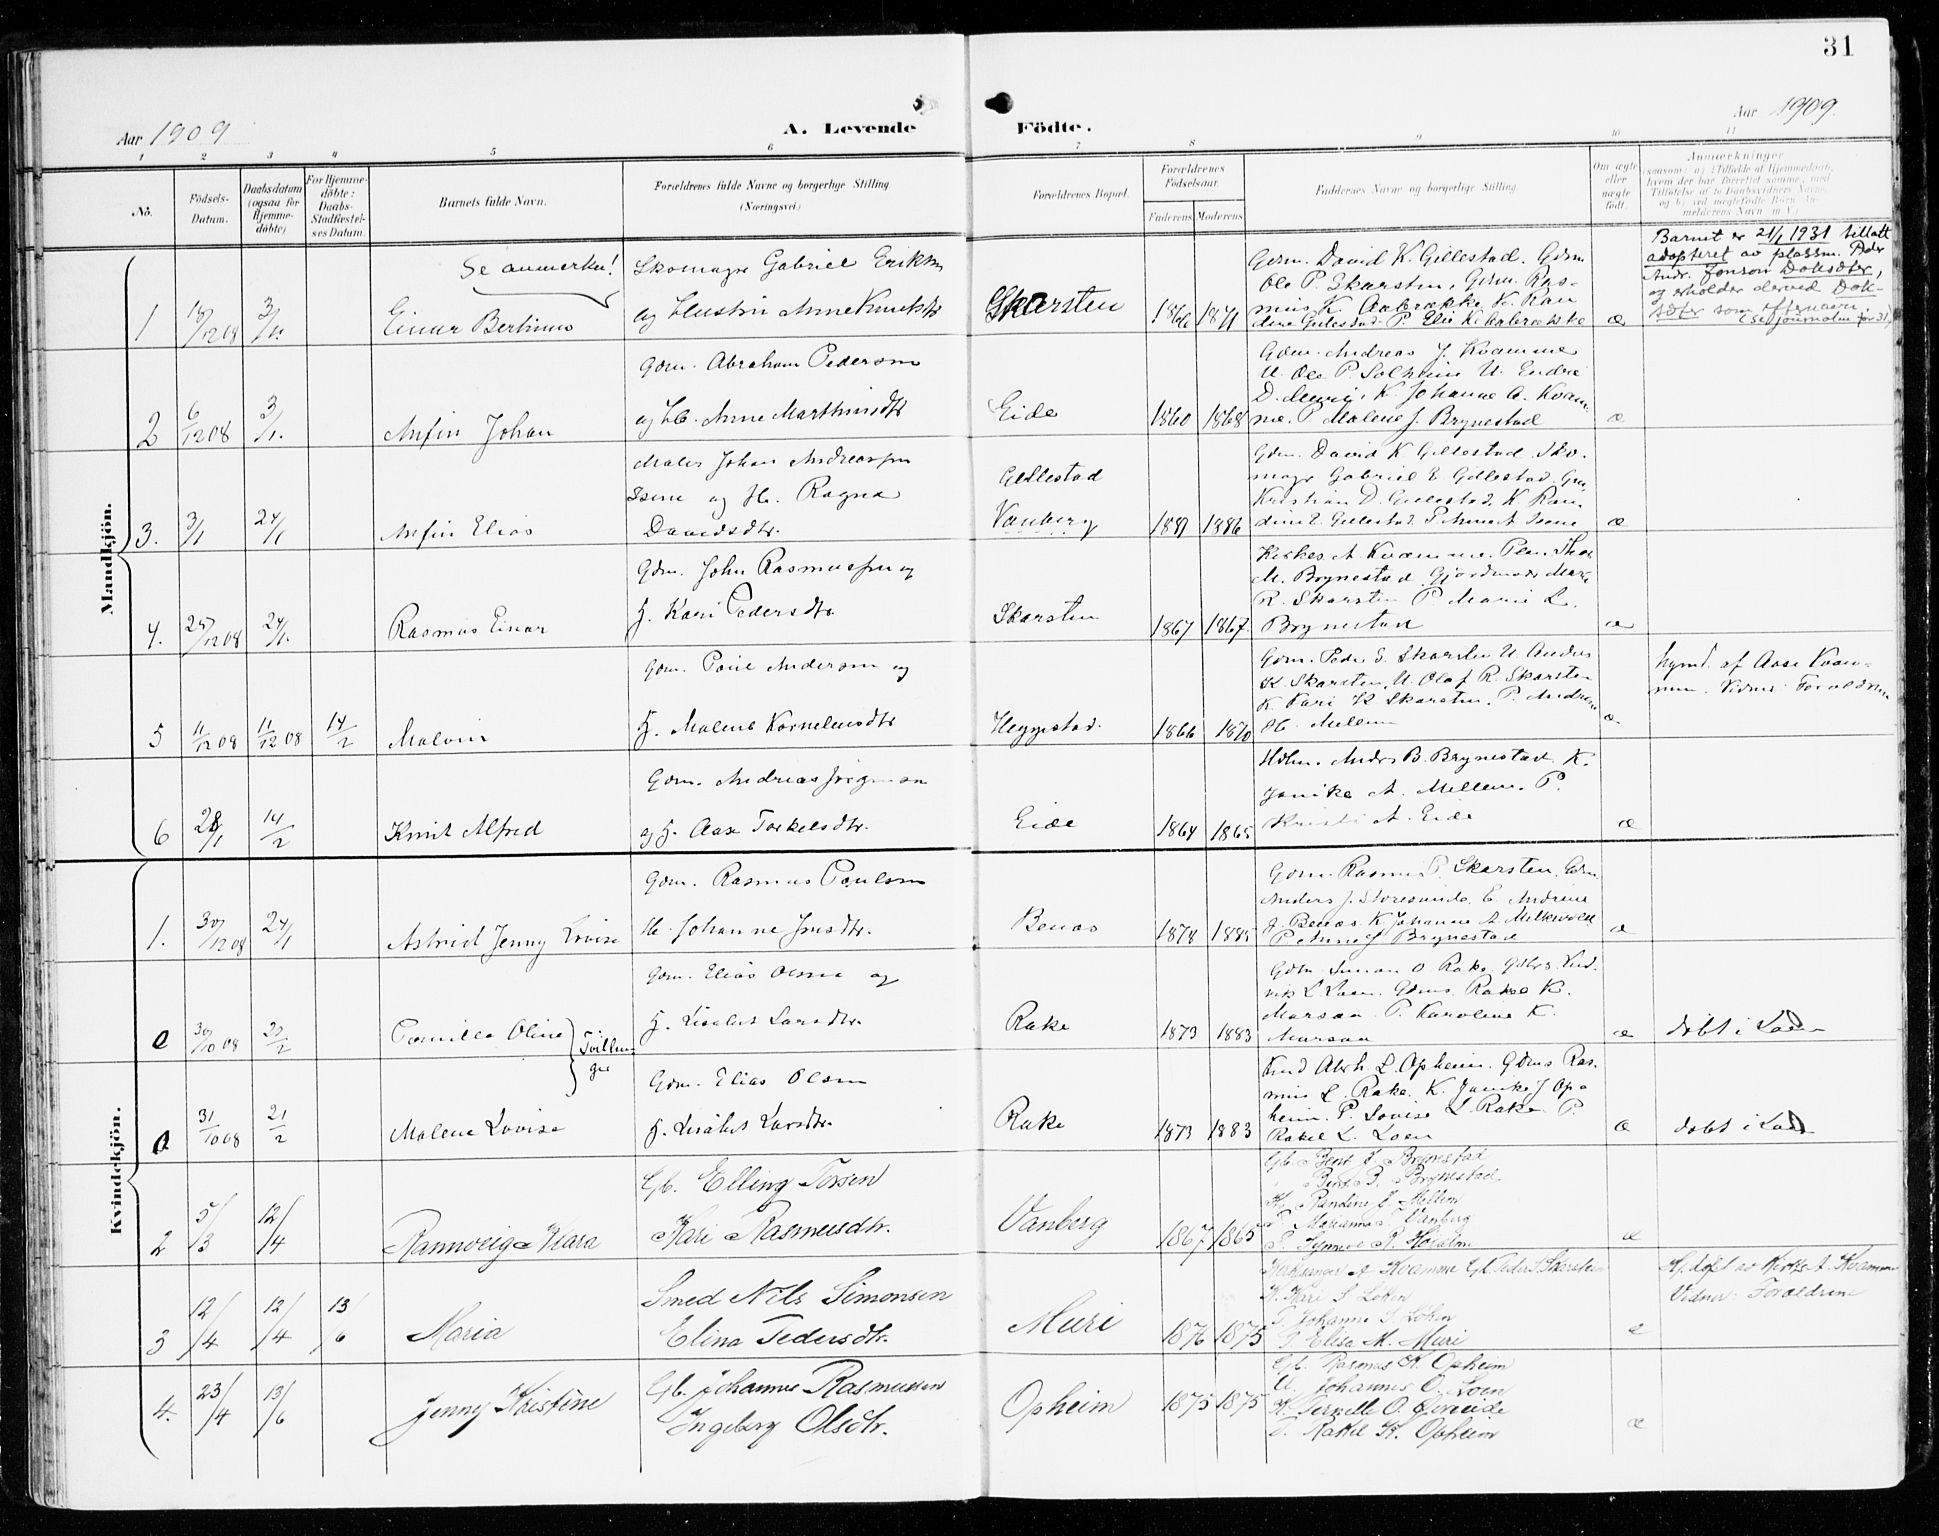 31
Aar 1909
A. Levende Födte.
Aar 1909.
1 2 3 4 5 6 7 8 9 10 11
No.
Födsels-Datum.
Daabsdatum (ogsaa for Hjemme-döbte)
For Hjemme-döbte: Daabs-Stadfæstel-ses Datum.
Barnets fulde Navn.
Forældrenes fulde Navne og borgerlige Stilling. (Næringsvei.)
Forældrenes Bopæl.
Forældrenes Födselsaar.
Faderens. Moderens.
Faddernes Navne og borgerlige Stilling.
Om ægte eller uægte födt.
Anmærkninger
Mandkjön.
Se anmerkn!
1 18/12 08 3/1. Einar Bertinus
Skomager Gabriel Eriksen
og Hustru Anne Knutsdtr
Skarsten 1866 1871
Gdm. David K. Gillestad. Gdm
Ole P. Skarsten, Gdm. Ras-
mus K. Aabrække K. Ran
dine Gillestad. P. Elie K Aabrække
æ
Barnet er 21/1 1931 tillatt
adoptert av plassm. Peder
Andr. Jonson Doksæter,
og erholder derved Dok-
sæter som efternavn.
(Se journalen for 31)
2 6/12 08 3/1. Anfin Johan
Gdm. Abraham Pedersen
og H. Anne Marthinsdtr
Eide 1860 1868
Gdm. Andreas J. Kvamme
U. Ole P. Solheim U. Endre
D. Muri, K. Johanne A. Kvam-
me. P. Malene J. Brynestad
æ
3. 3/1 24/1 Anfin Elias
Maler Johan Andreassen
Isene og H. Ragna
Davidsdtr.
Gillestad
Vanberg 1881 1886
Gdm. David K Gillestad. Sko-
mager Gabriel E Gillestad. Gm
Kristian D. Gillestad. K Ran
dine E. Gillestad. P. Anne A Isene
æ
4. 25/12 08 24/1. Rasmus Einar
Gdm. John Rasmussen og
H. Kari Pedersdtr
Skarsten 1867 1867.
M. Brynestad
R. Skarsten P. Marie L.
Brynestad
æ
5 11/12 08 11/12 08 14/2 Malvin
Gdm. Poul Andersen og
H. Malene Korneliusdtr
Heggestad. 1866 1870
Gdm. Peder S. Skarsten U. Anders
K. Skarsten, U. Olaf R. Skarsten
K. Kari K Skarsten, P. Andrea
H. Mellem
æ
hjmd. af Aase Kvam-
men. Vidner: Forældrene
6 28/1 14/2 Knut Alfred
Gdm. Andreas Jørgensen
og H. Aase Torkelsdtr.
Eide 1864 1865
Anders B. Brynestad. K.
Janike A. Mellem. P.
Kristi A. Eide
æ
Kvindekjön.
1. 30/12 08 24/1 Astrid Jenny Lovise
Gdm. Rasmus Paulsen
H. Johanne Jensdtr.
Benæs 1878 1885
Gdm. Rasmus P. Skarsten. Gdm
Anders J. Storesunde. E. Andrine
J. Benæs. K Johanne A Melkevoll
P. Anne J Brynestad
æ
0 30/10 08 21/2 Pernille Oline
Tvillin-
ger
Gdm. Elias Olsen og
H. Lisabet Larsdtr.
Rake 1873 1883
Gdm. Simon O. Rake. Gdbrs. Lud-
vik L Loen. Gdms. Rakel K.
Marsaa. P. Karoline K.
Marsaa
æ
døbt i Loen
0 31/10 08 21/2 Malene Lovise
Gdm. Elias Olsen
H. Lisabet Larsdtr.
Rake 1873 1883
Abrh. L. Opheim. Gdms Ras-
mus L. Rake. K. Janike J Op-
heim. P. Lovise L. Rake P.
Rakel L. Loen
æ
døbt i Loen
2 5/3 12/4 Rannveig Klara
Gb. Elling Tørsen
Kari Rasmusdtr.
Vanberg 1867 1865
Gb. Bent J. Brynestad
Bent B. Brynestad
K. Randine J. Mellem
P. Marianne Vanberg
P. Synneve R.
æ
3 12/4 12/4 13/6 Maria
Smed Nils Simonsen
Elina Pedersdtr.
Muri 1876 1875
Kirkesanger A Kvamme Gb. Peder S. Skarsten
K. Kari S. Loken
P. Johanne S. Loken
P Elisa M. Muri
æ
Hj.døpt av Kirks. A. Kvamme
Vidner: Forældrene
4. 23/4 13/6 Jenny Kristine
Gb. Johannes Rasmussen
Ingeborg Olsdtr.
Opheim 1875 1875
Gb. Rasmus K. Opheim
U. Johannes O. Loen
K. Pernille O. Øvreeide
P. Rakel K. Opheim
æ